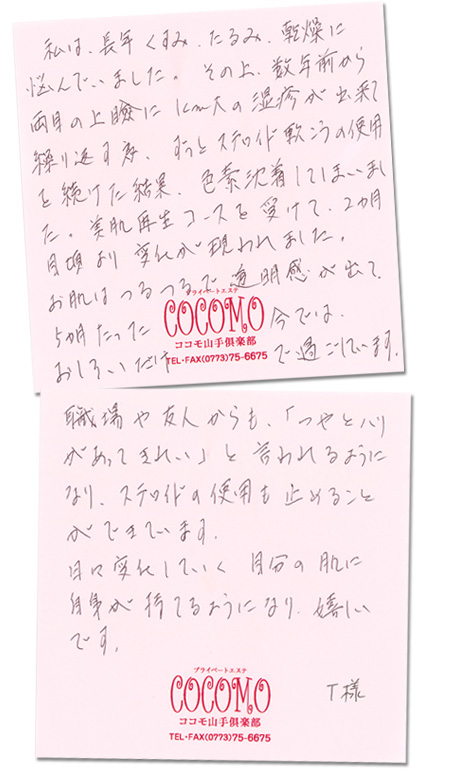 私は、長年くすみ、たるみ、乾燥に
悩んでいました。その上、数年前から
両目の上瞼に1cm大の湿疹が出来て
繰り返す為、ずっとステロイド軟こうの使用
を続けた結果、色素沈着してしまいまし
た。美肌再生コースを受けて、2ヵ月
目頃より変化が現われました。
お肌はつるつるで透明感が出て、
プライベートエステ
COCOMO
5ヵ月たった今では、
ココモ山手倶楽部
おしろいだけで過ごしています。
TEL・FAX(0773)75-6675
職場や友人からも、「つやとハリ
があってきれい」と言われるように
なり、ステロイドの使用も止めること
ができています。
日々変化していく自分の肌に
自身が持てるようになり、嬉しい
です。
プライベートエステ
COCOMO
ココモ山手倶楽部
TEL・FAX(0773)75-6675
T様